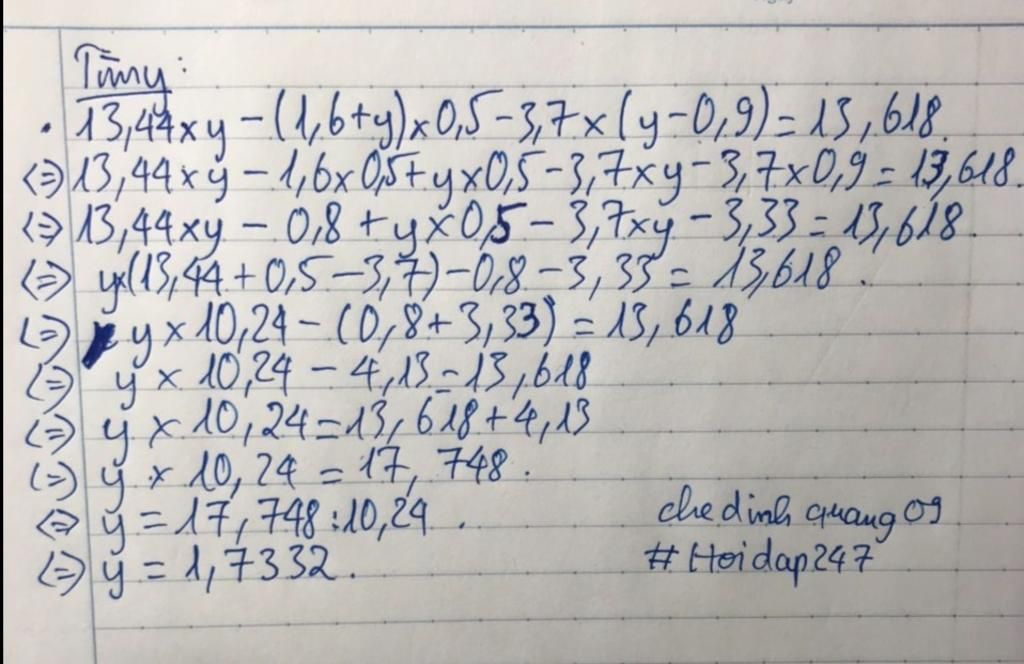 Tìm y:
. 13,44 x y - (1,6 + y) x 0,5 - 3,7 x (y - 0,9) = 13,618.
<=> 13,44 x y - 1,6 x 0,5 + y x 0,5 - 3,7 x y - 3,7 x 0,9 = 13,618.
<=> 13,44 x y - 0,8 + y x 0,5 - 3,7 x y - 3,33 = 13,618.
<=> y x (13,44 + 0,5 - 3,7) - 0,8 - 3,33 = 13,618.
<=> y x 10,24 - (0,8 + 3,33) = 13,618
<=> y x 10,24 - 4,13 = 13,618
<=> y x 10,24 = 13,618 + 4,13
<=> y x 10,24 = 17,748.
<=> y = 17,748 : 10,24.
<=> y = 1,7332.
chedinh quang09
#Hoidap247